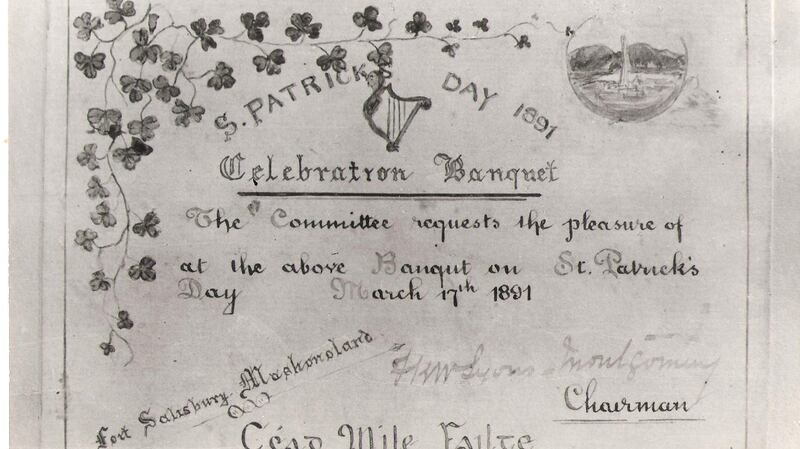 S. PATRICKS DAY 1891
Celebration Banquet
The Committee requests the pleasure of
at the above Banqut on St. Patrick's
Day March 17th 1891
Fort Salisbury Mashonaland
Lyons - Montgomery
Chairman
Céad Mile Failte